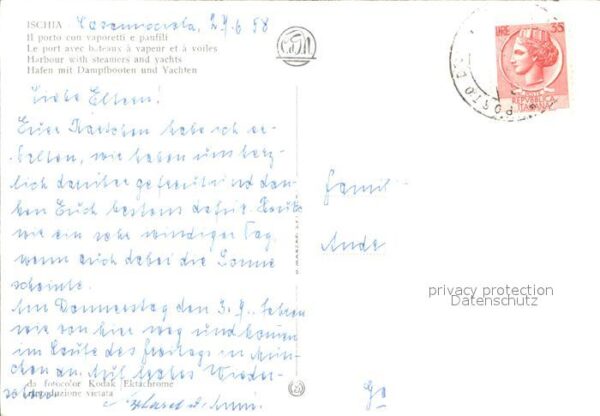 ISCHIA - Casamicciola, 29.6.58
Il porto con vaporetti e panfili
Le port avec bateaux à vapeur et à voiles
Harbour with steamers and yachts
Hafen mit Dampfbooten und Yachten
LIRE 35
POSTE
REPUBBLICA
ITALIANA
Liebe Eltern!
Euer Kärtchen habe ich er-
halten, wir haben uns herz-
lich darüber gefreut und dan-
ken Euch bestens dafür. Heute
war ein sehr windiger Tag,
wenn auch dabei die Sonne
scheinte.
Am Donnerstag den 3.7. fahren
wir von hier weg und kommen
im Laufe des Freitags in Mün-
chen an. Auf liebes Wieder-
Famil
privacy protection
Datenschutz
da fotocolor Kodak Ektachrome
riproduzione vietata